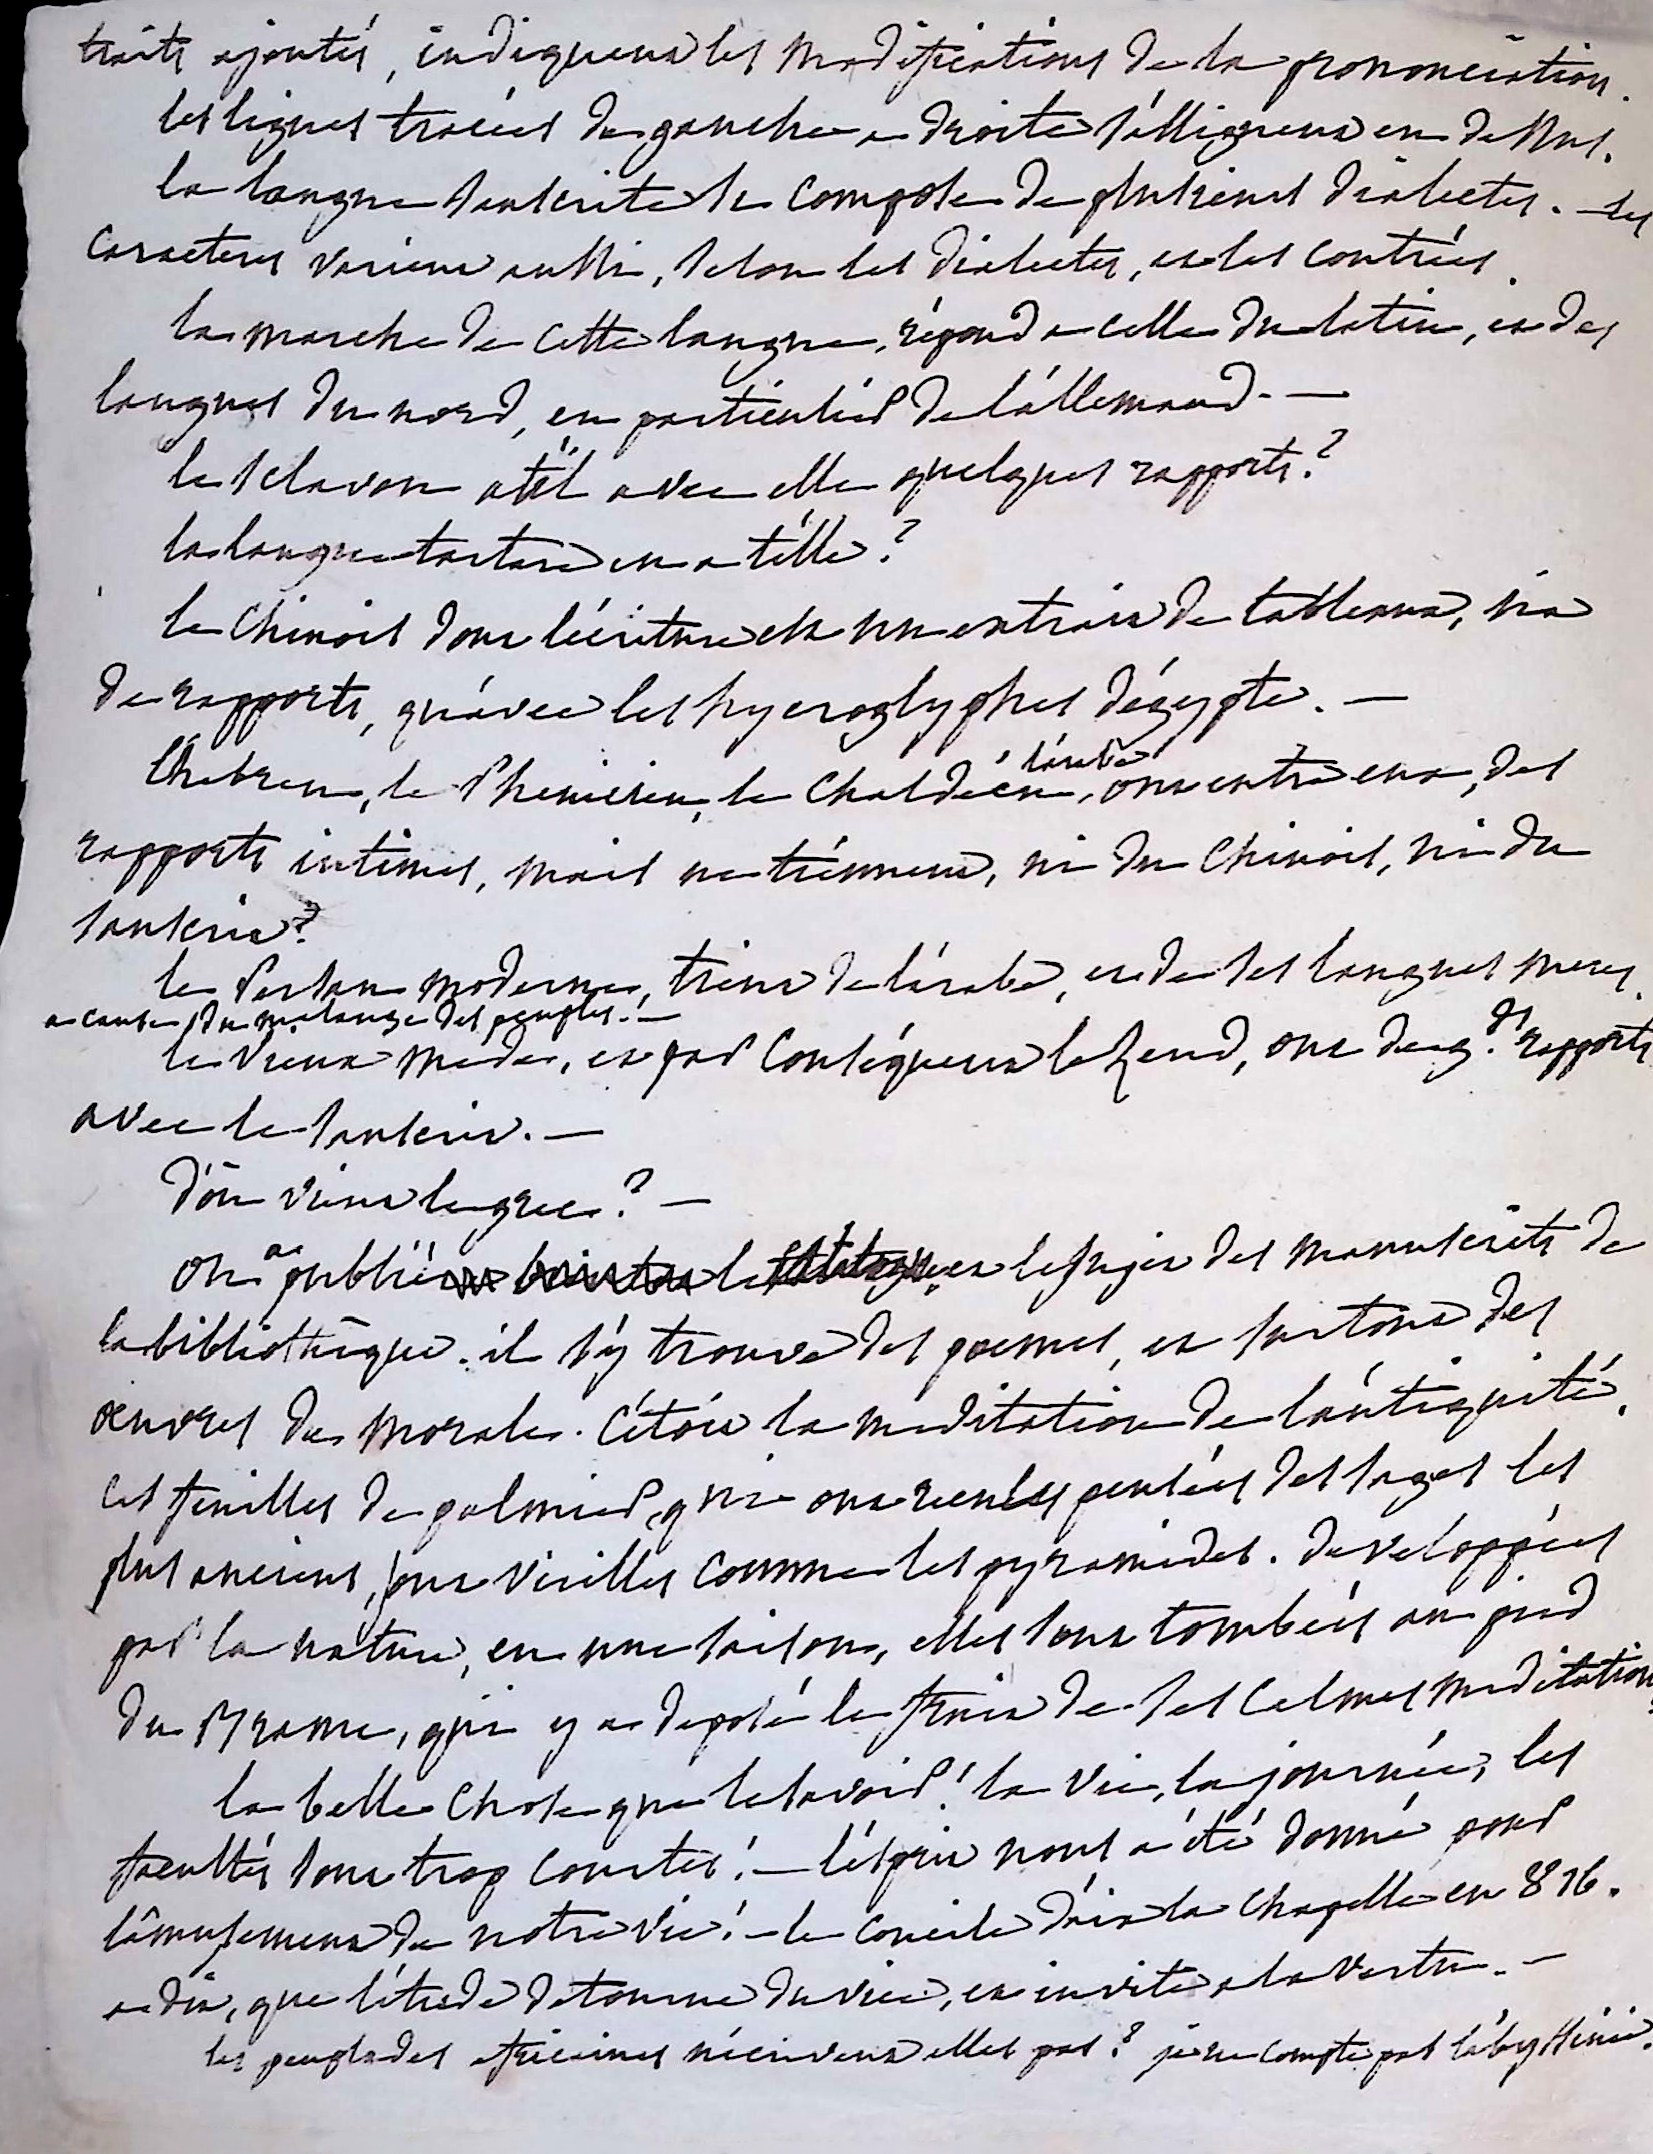 traits ajoutés, indiquent les modifications de la prononciation.
les lignes tracées de gauche a droite s'allignent en dessus.
la langue sanscrite se compose de plusieurs dialectes. — les
caracteres varient aussi, selon les dialectes, et les contrées.
la marche de cette langue, répond a celle du latin, et des
langues du nord, en particulier de l'allemand. —
le sclavon at'il avec elle quelques rapports ?
la langue tartare en a t'elle ?
le Chinois dont l'écriture est un extrait de tableaux, n'a
de rapports, qu'avec les hyeroglyphes d'égypte. —
l'hebreu, le Phenicien, le Chaldéen, l'arabe, ont entre eux, des
rapports intimes, mais ne tiennent, ni du Chinois, ni du
sanscrit ?
le Persan moderne, tient de l'arabe, et de ses langues meres
a cause du mélange des peuples. —
le vieux mede, et par conséquent le Zend, ont de gds. rapports
avec le sanscrit. —
d'où vient le grec ? —
on a publié le et le sujet des manuscrits de
la bibliothèque. il s'y trouve des poemes, et surtout des
œuvres de morale. C'étoit la meditation de l'antiquité.
Ces feuilles de palmier, qui ont recu les pensées des sages les
plus anciens, sont vieilles comme les pyramides. developpées
par la nature, en une saison, elles sont tombées au pied
du Brame, qui y a deposé le fruit de ses calmes meditations.
la belle chose que le savoir ! la vie, la journée, les
facultés sont trop courtes ! — l'esprit nous a été donné pour
l'amusement de notre vie ! — le concile d'aix la Chapelle en 816.
a dit, que l'étude detourne du vice, et invite a la vertu. —
les peuplades africaines n'écrivent elles pas ? je ne compte pas l'abyssinie.